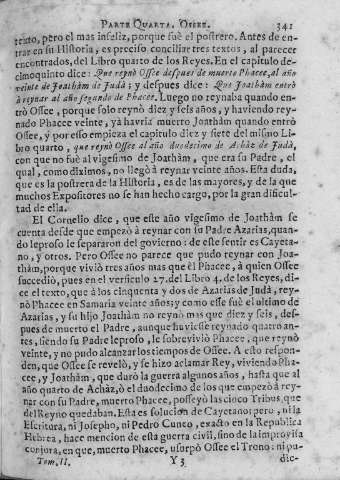 PARTE QUARTA. OSSEE. 341
texto, pero el mas infeliz, porque fuè el postrero. Antes de en-
trar en su Historia, es preciso conciliar tres textos, al parecer
encontrados, del Libro quarto de los Reyes. En el capitulo de-
cimoquinto dice: Que reynò Ossee despues de muerto Phacee, al año
veinte de Joathàm de Judà; y despues dice: Que Joathàm entrò
à reynar al año segundo de Phacee. Luego no reynaba quando en-
trò Ossee, porque solo reynò diez y seis años, y haviendo rey-
nado Phacee veinte, yà havria muerto Joathàm quando entrò
Ossee, y por esso empieza el capitulo diez y siete del mismo Li-
bro quarto, que reynò Ossee al año duodecimo de Achàz de Judà,
con que no fuè al vigesimo de Joathàm, que era su Padre, el
qual, como diximos, no llegò à reynar veinte años. Esta duda,
que es la postrera de la Historia, es de las mayores, y de la que
muchos Expositores no se han hecho cargo, por la gran dificul-
tad de ella.
El Cornelio dice, que este año vigesimo de Joathàm se
cuenta desde que empezò à reynar con su Padre Azarias, quan-
do leproso le separaron del govierno: de este sentir es Cayeta-
no, y otros. Pero Ossee no parece que pudo reynar con Joa-
thàm, porque viviò tres años mas que èl Phacee, à quien Ossee
succediò, pues en el versiculo 27. del Libro 4. de los Reyes, di-
ce el texto, que à los cinquenta y dos de Azarias de Judà, rey-
nò Phacee en Samaria veinte años; y como esse fuè el ultimo de
Azarias, y su hijo Joathàm no reynò mas que diez y seis, des-
pues de muerto el Padre, aunque huviesse reynado quatro an-
tes, siendo su Padre leproso, le sobreviviò Phacee, que reynò
veinte, y no pudo alcanzar los tiempos de Ossee. A esto respon-
den, que Ossee se revelò, y se hizo aclamar Rey, viviendo Pha-
cee, y Joathàm, que durò la guerra algunos años, hasta que al
año quarto de Achàz, ò el duodecimo de los que empezò à rey-
nar con su Padre, muerto Phacee, posseyò las cinco Tribus, que
del Reyno quedaban. Esta es solucion de Cayetano; pero, ni la
Escritura, ni Josepho, ni Pedro Cuneo, exacto en la Republica
Hebrea, hace mencion de esta guerra civil, sino de la improvisa
conjura, en que, muerto Phacee, usurpò Ossee el Trono: ni pu-
Tom. II. Y 3 dic-